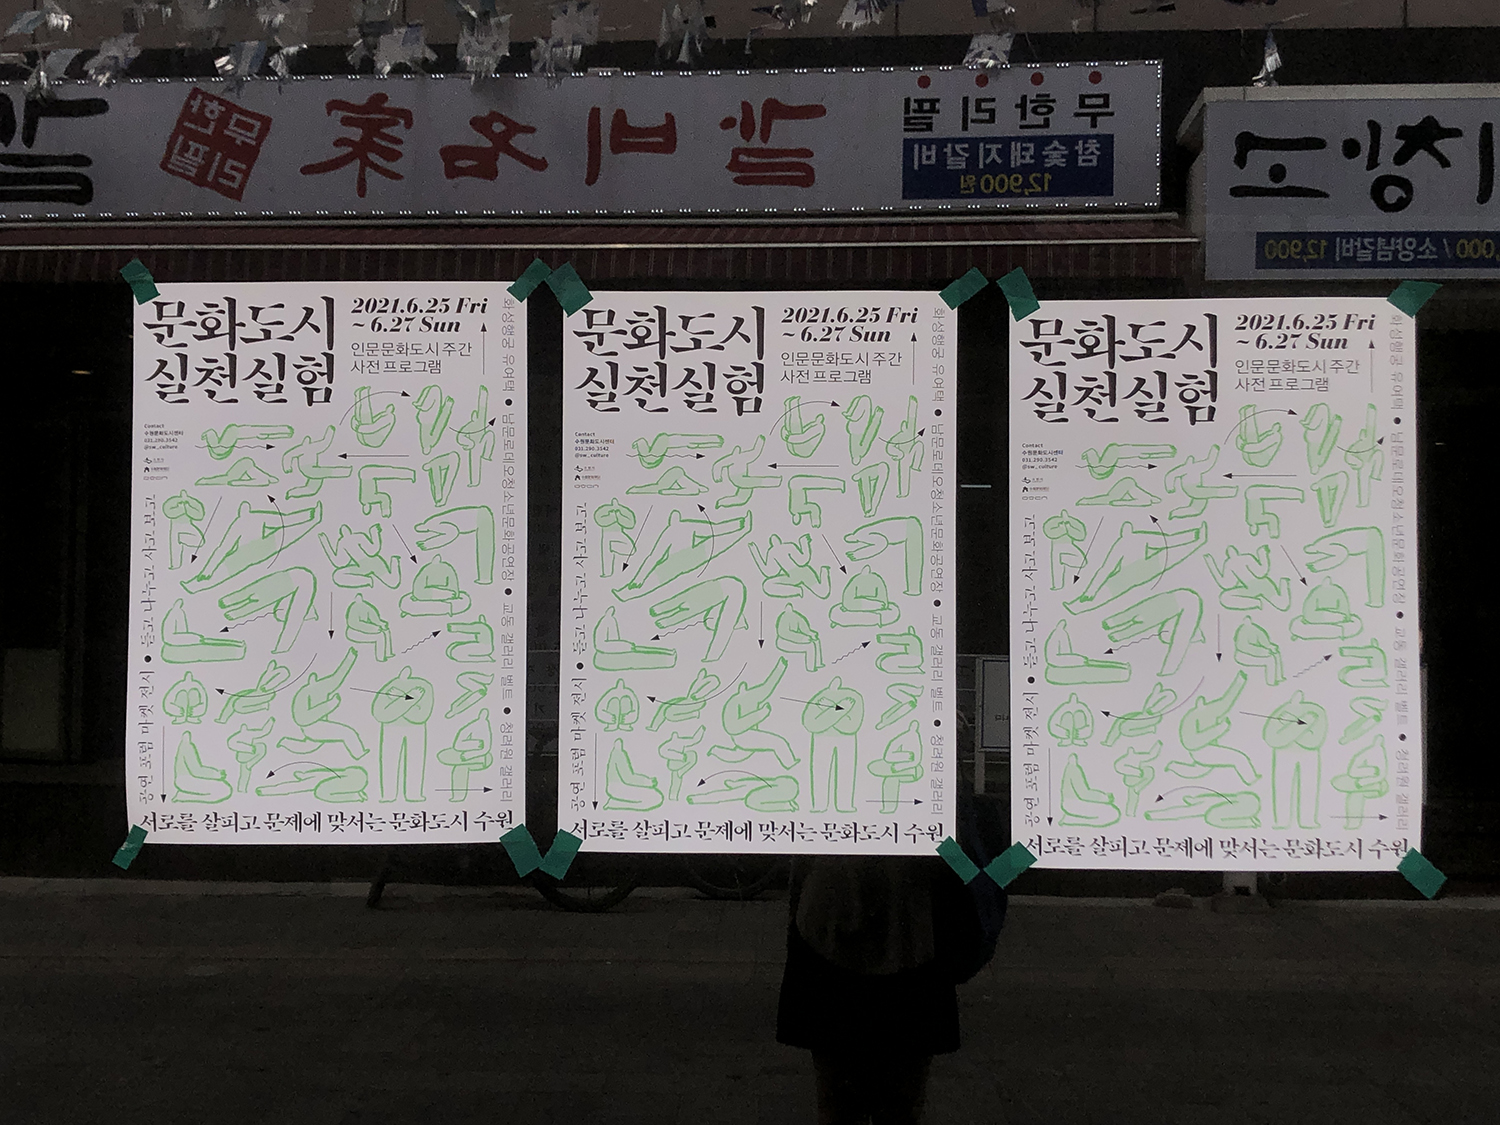 무한
리필
家名비갈
무한리필
참숯돼지갈비
12,900원
소양념갈비 12,900
문화도시
실천실험
2021.6.25 Fri
~ 6.27 Sun
인문문화도시 주간
사전 프로그램
Contact
수원문화도시센터
031.290.3542
@sw_culture
화성행궁 유여택 ● 남문로데오청소년문화공연장 ● 교동 갤러리 벨트 ● 청려원 갤러리
공연 포럼 마켓 전시 ● 듣고 나누고 사고 보고
서로를 살피고 문제에 맞서는 문화도시 수원
문화도시
실천실험
2021.6.25 Fri
~ 6.27 Sun
인문문화도시 주간
사전 프로그램
Contact
수원문화도시센터
031.290.3542
@sw_culture
화성행궁 유여택 ● 남문로데오청소년문화공연장 ● 교동 갤러리 벨트 ● 청려원 갤러리
공연 포럼 마켓 전시 ● 듣고 나누고 사고 보고
서로를 살피고 문제에 맞서는 문화도시 수원
문화도시
실천실험
2021.6.25 Fri
~ 6.27 Sun
인문문화도시 주간
사전 프로그램
Contact
수원문화도시센터
031.290.3542
@sw_culture
화성행궁 유여택 ● 남문로데오청소년문화공연장 ● 교동 갤러리 벨트 ● 청려원 갤러리
공연 포럼 마켓 전시 ● 듣고 나누고 사고 보고
서로를 살피고 문제에 맞서는 문화도시 수원